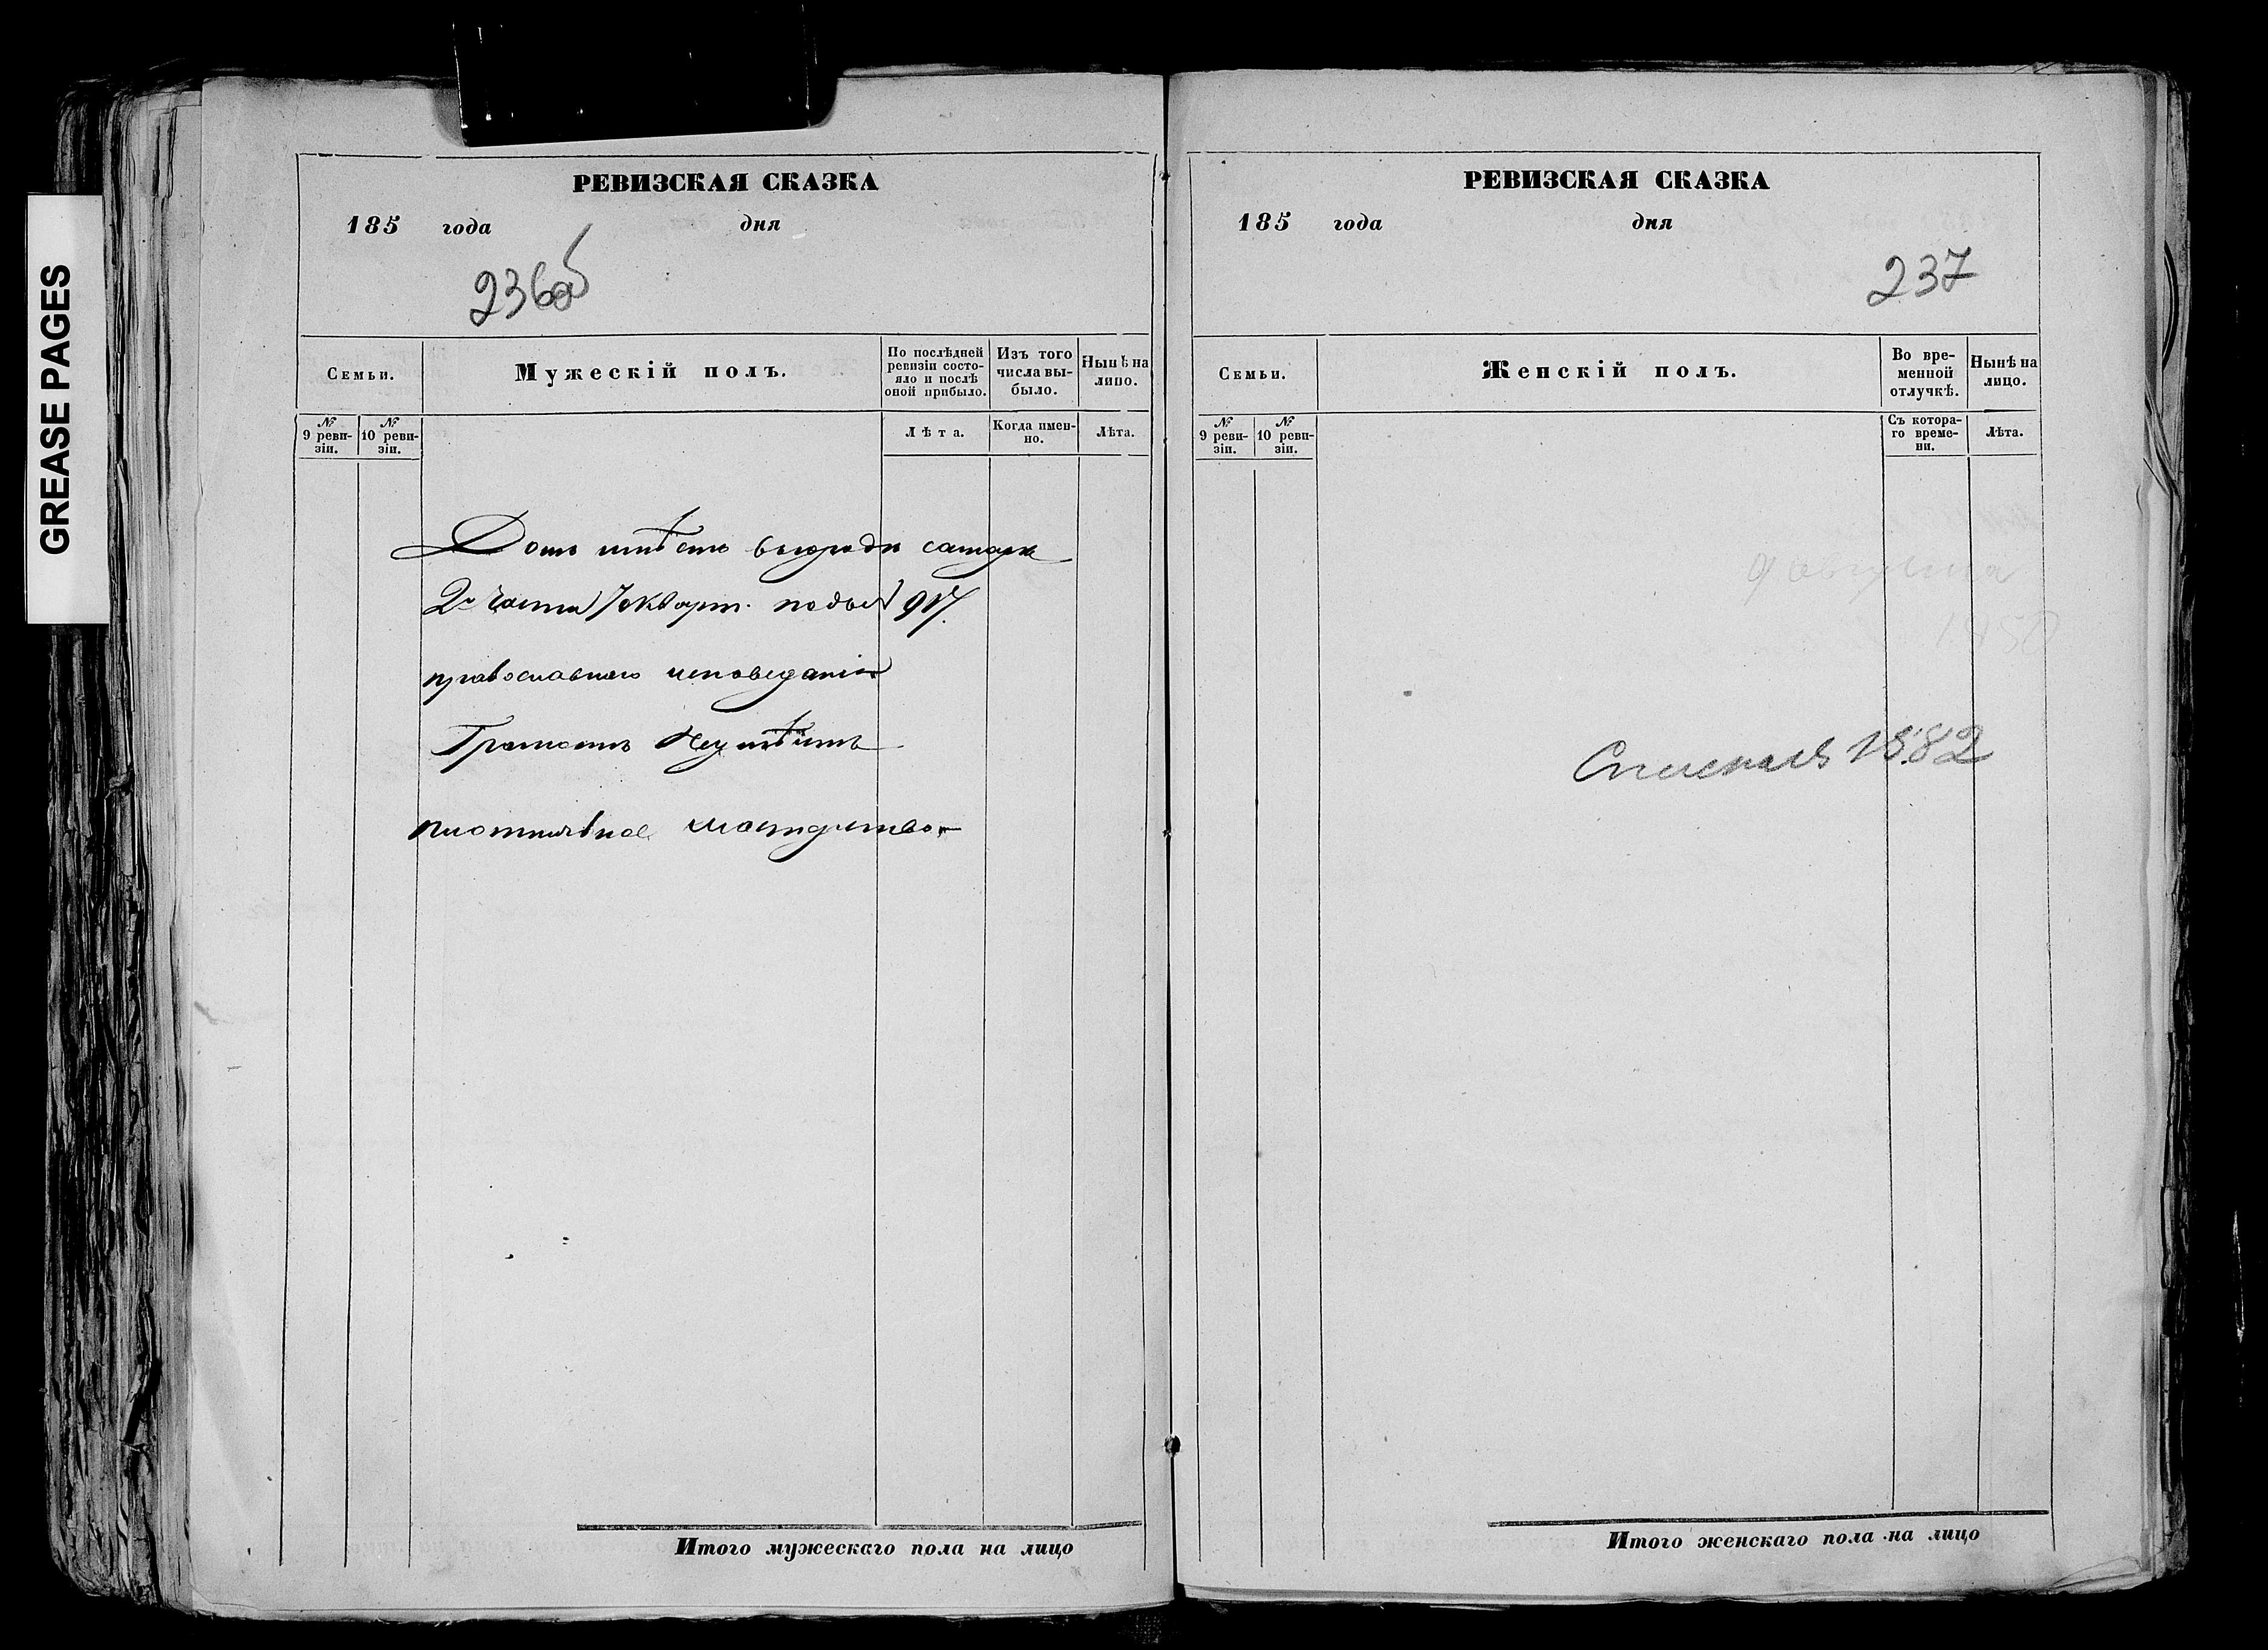 GREASE PAGES
РЕВИЗСКАЯ СКАЗКА
185 года дня
236об
Семьи.
Мужескій полъ.
По послѣдней ревизіи состояло и послѣ оной прибыло.
Изъ того числа выбыло.
Нынѣ на лицо.
№ 9 ревизіи.
№ 10 ревизіи.
Лѣта.
Когда именно.
Лѣта.
Домъ имѣетъ въ городѣ самаре
2й части 7 кварт. подъ № 917.
православнаго исповеданія
Грамотѣ Неумѣитъ
плотничное мастерство
Итого мужескаго пола на лицо
РЕВИЗСКАЯ СКАЗКА
185 года дня
237
Семьи.
Женскій полъ.
Во временной отлучкѣ.
Нынѣ на лицо.
№ 9 ревизіи.
№ 10 ревизіи.
Съ котораго времени.
Лѣта.
1882
Итого женскаго пола на лицо